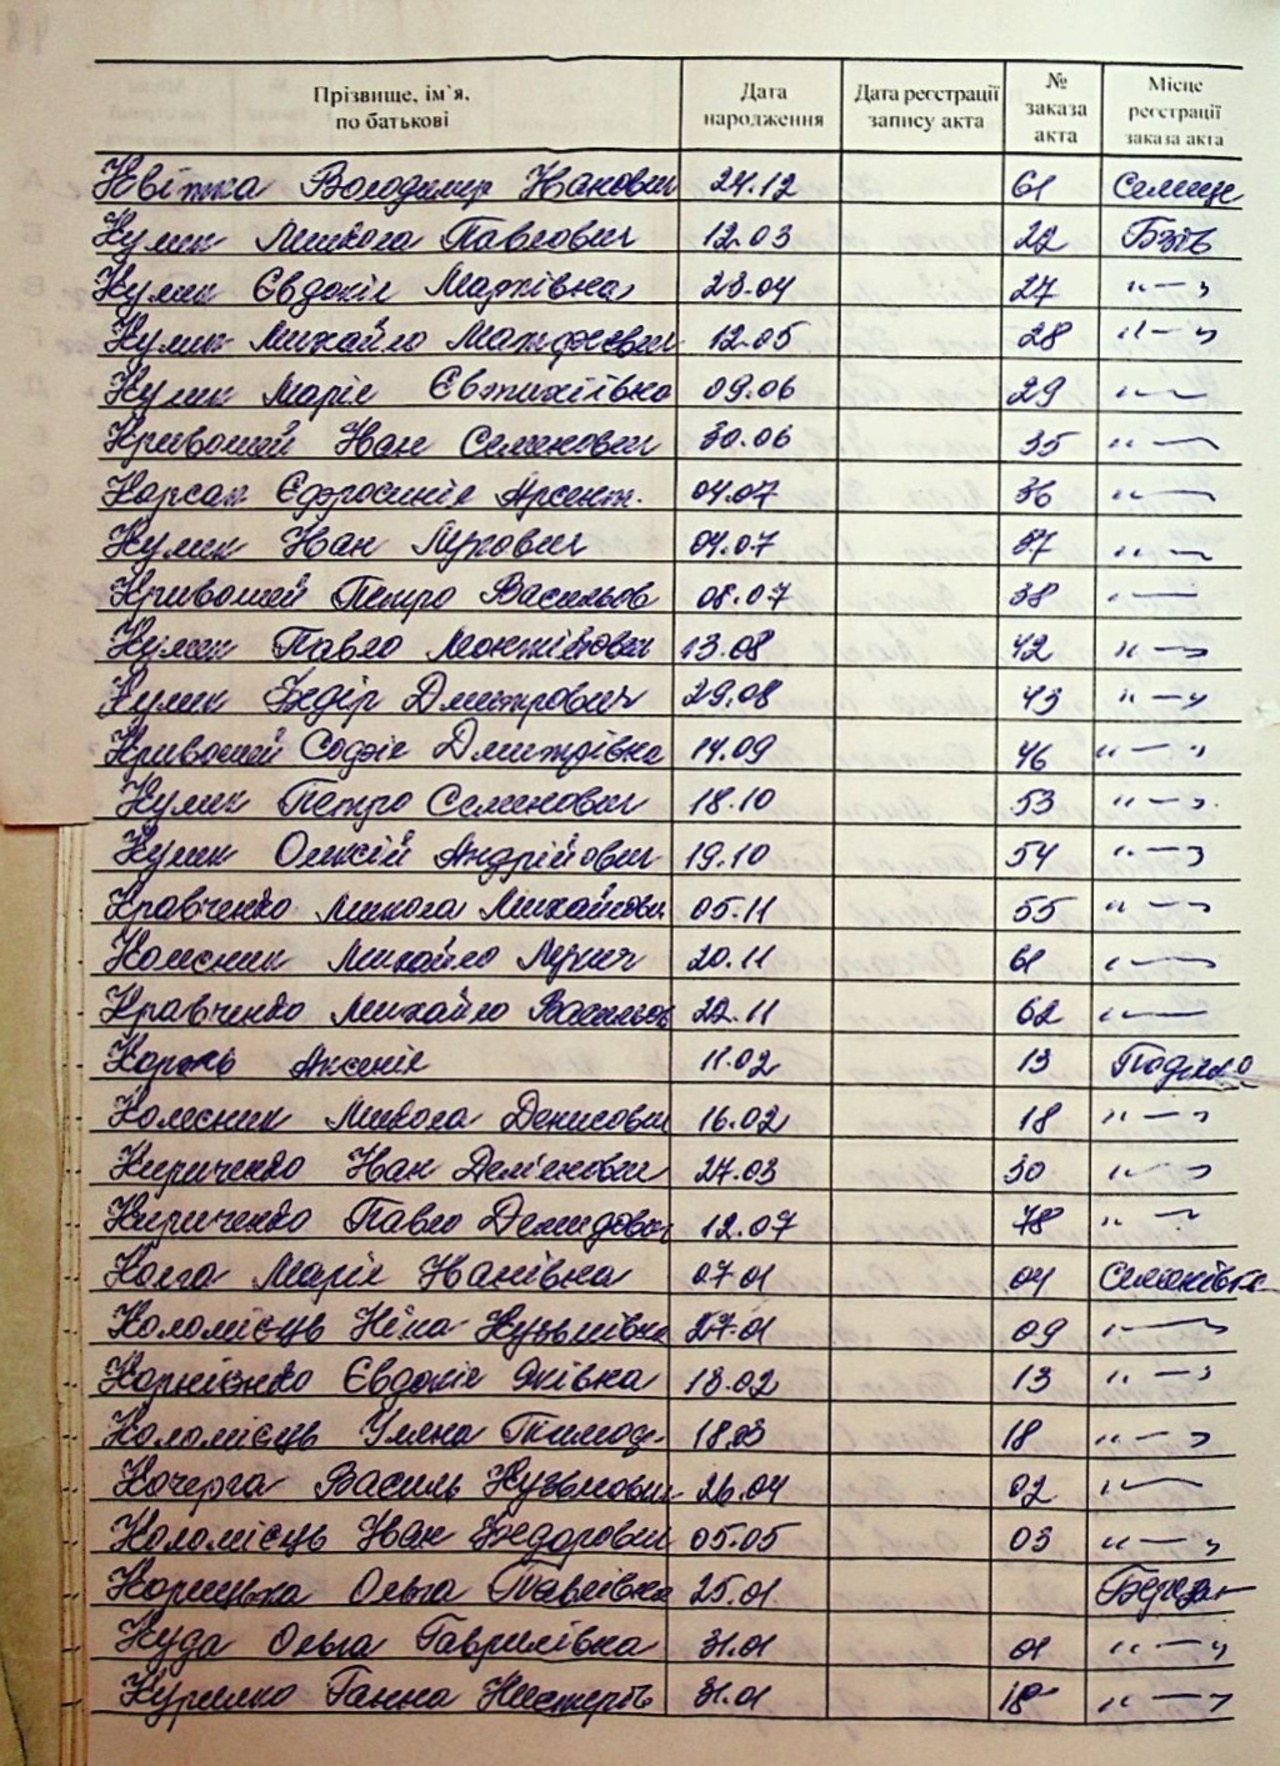 Прізвище, ім`я, по батькові Дата народження Дата реєстрації запису акта № заказа акта Місце реєстрації заказа акта
Квітка Володимир Іванович 24.12 61 Селище
Кулик Микола Павлович 12.03 22 Бзів
Кулик Євдокія Марківна 23.04 27 "—"
Кулик Михайло Матфієвич 12.05 28 "—"
Кулик Марія Євтихіївна 09.06 29 "—
Кривошей Іван Семенович 30.06 35 "—
Корсак Єфросинія Арсент. 04.07 36 "—
Кулик Іван Лукович 04.07 37 "—
Кривошей Петро Васильов 08.07 38 "—
Кулик Павло 13.08 42 "—"
Кулик Федір Дмитрович 29.08 43 "—"
Кривошей Софія Дмитрівна 14.09 46 "—"
Кулик Петро Семенович 18.10 53 "—"
Кулик Олексій Андрійович 19.10 54 "—"
Кравченко Микола Михайлович 05.11 55 "—"
Колесник Михайло Лукич 20.11 61 "—
Кравченко Михайло Васильов 22.11 62 "—
Король Аксенія 11.02 13
Колесник Микола Денисович 16.02 18 "—"
Кириченко Іван Дем'янович 27.03 30 "—"
Кириченко Павло Демидович 12.07 78 "—"
Колга Марія Іванівна 07.01 04 Семенівка
Коломієць Ніна Кузьмівна 27.01 09 "—"
Корнієнко Євдокія Яківна 18.02 13 "—"
Коломієць Уляна Тимоф. 18.03 18 "—"
Кочерга Василь Кузьмович 26.04 02 "—
Коломієць Іван Федорович 05.05 03 "—"
Корицька Ольга Павлівна 25.01 Березан
Куда Ольга Гаврилівна 31.01 01 "—"
Курилко Ганна Нестерів 31.01 18 "—"